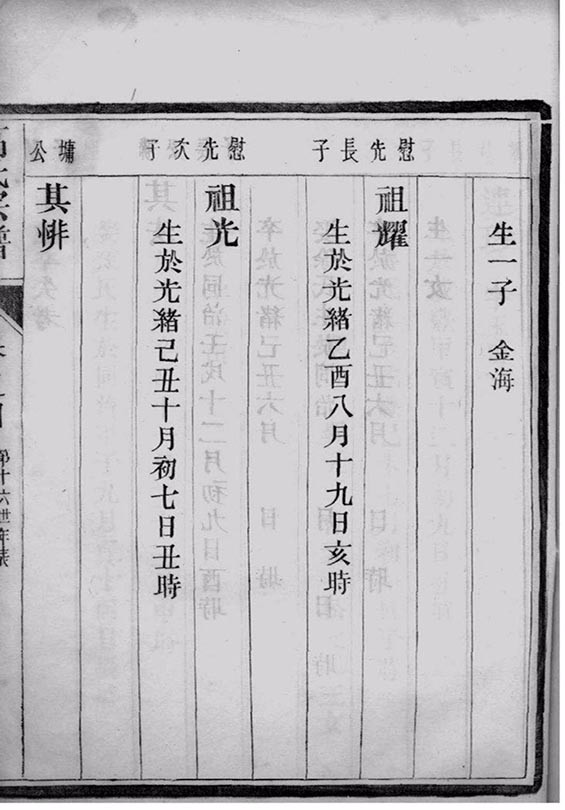 生一子 金海
慰先長子
祖耀
生於光緒乙酉八月十九日亥時
慰先次子
祖光
生於光緒己丑十月初七日丑時
墉公
其悱
第十六世年表